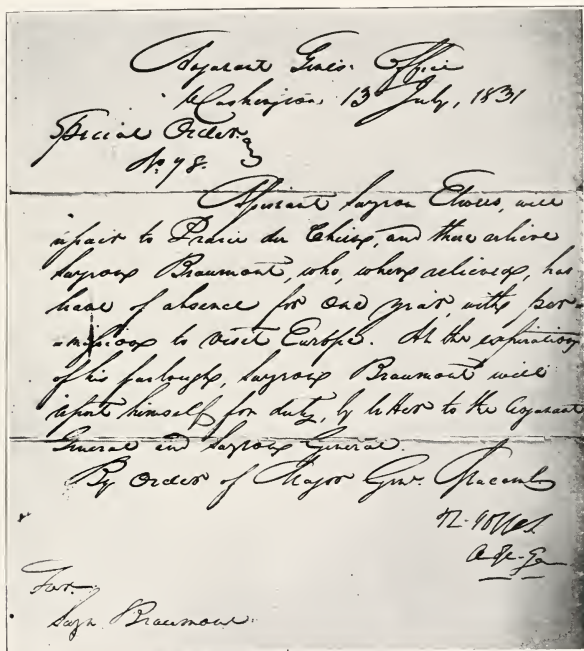 Adjutant Genls. Office
Washington 13 July, 1831
Special Order
No. 78.
Assistant Surgeon Elwes, will
repair to Prairie du Chien, and there relieve
Surgeon Beaumont, who, when relieved, has
leave of absence for one year, with per-
mission to visit Europe. At the expiration
of his furlough, Surgeon Beaumont will
report himself for duty, by letter to the Adjutant
General and Surgeon General.
By Order of Major Genl. Macomb
For
Surgn Beaumont.